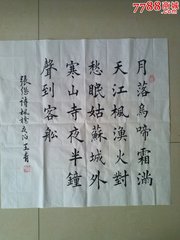 7788商城
月落烏啼霜滿
天江楓漁火對
愁眠姑蘇城外
寒山寺夜半鐘
聲到客船
張繼詩楓橋夜泊